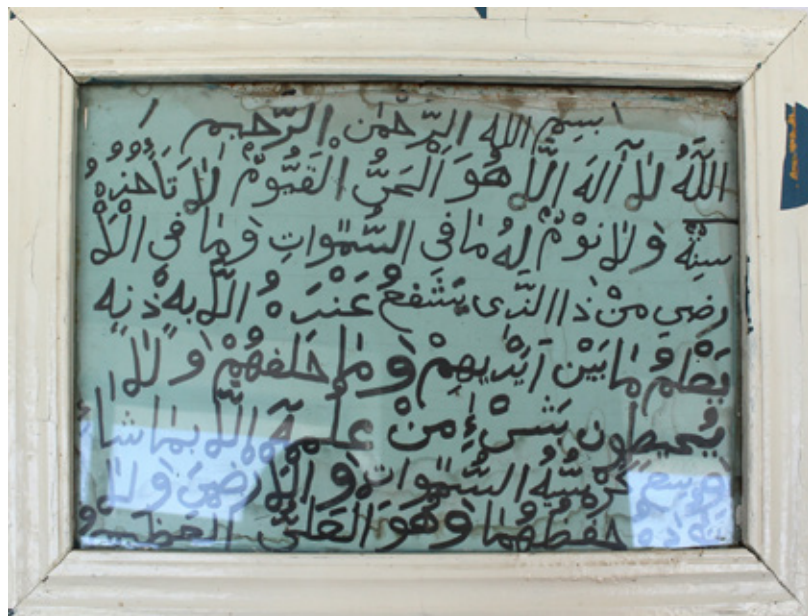 بسم الله الرَّحْمٰن الرَّحيم
اللَّهُ لاَ آلهَ الَّا هُوَ الْحَيُّ الْقَيُّومُ لاَ تَأْخُذُهُ
سِنَةٌ وَلاَ نَوْمٌ لهُ مَا فى السَّمٰوَاتِ وَمَا فى الْاَ
رضِ مَنْ ذَا الَّذى يَشْفَعُ عَنْدَهُ الَّا بِهْذْنِه
يَعْلَمُ مَا بَيْنَ اَيْدِيهِمْ وَمَا خَلفهُمْ وَلاَ
يُحيطون بَشْىْءٍ مِنْ عِلْمِهِ الَّا بمَا شَا
وسِعَ كُرْسيُّهُ السَّمٰوَاتِ وَالْاَرْضَ وَلاَ
حفظُهُمَا وَهُوَ الْعَلىُّ العَظيم